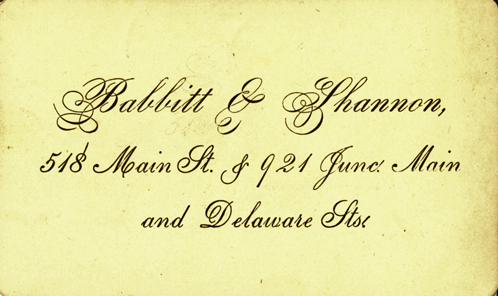 Babbitt & Shannon,
518 Main St. & 921 Junc. Main
and Delaware Sts.